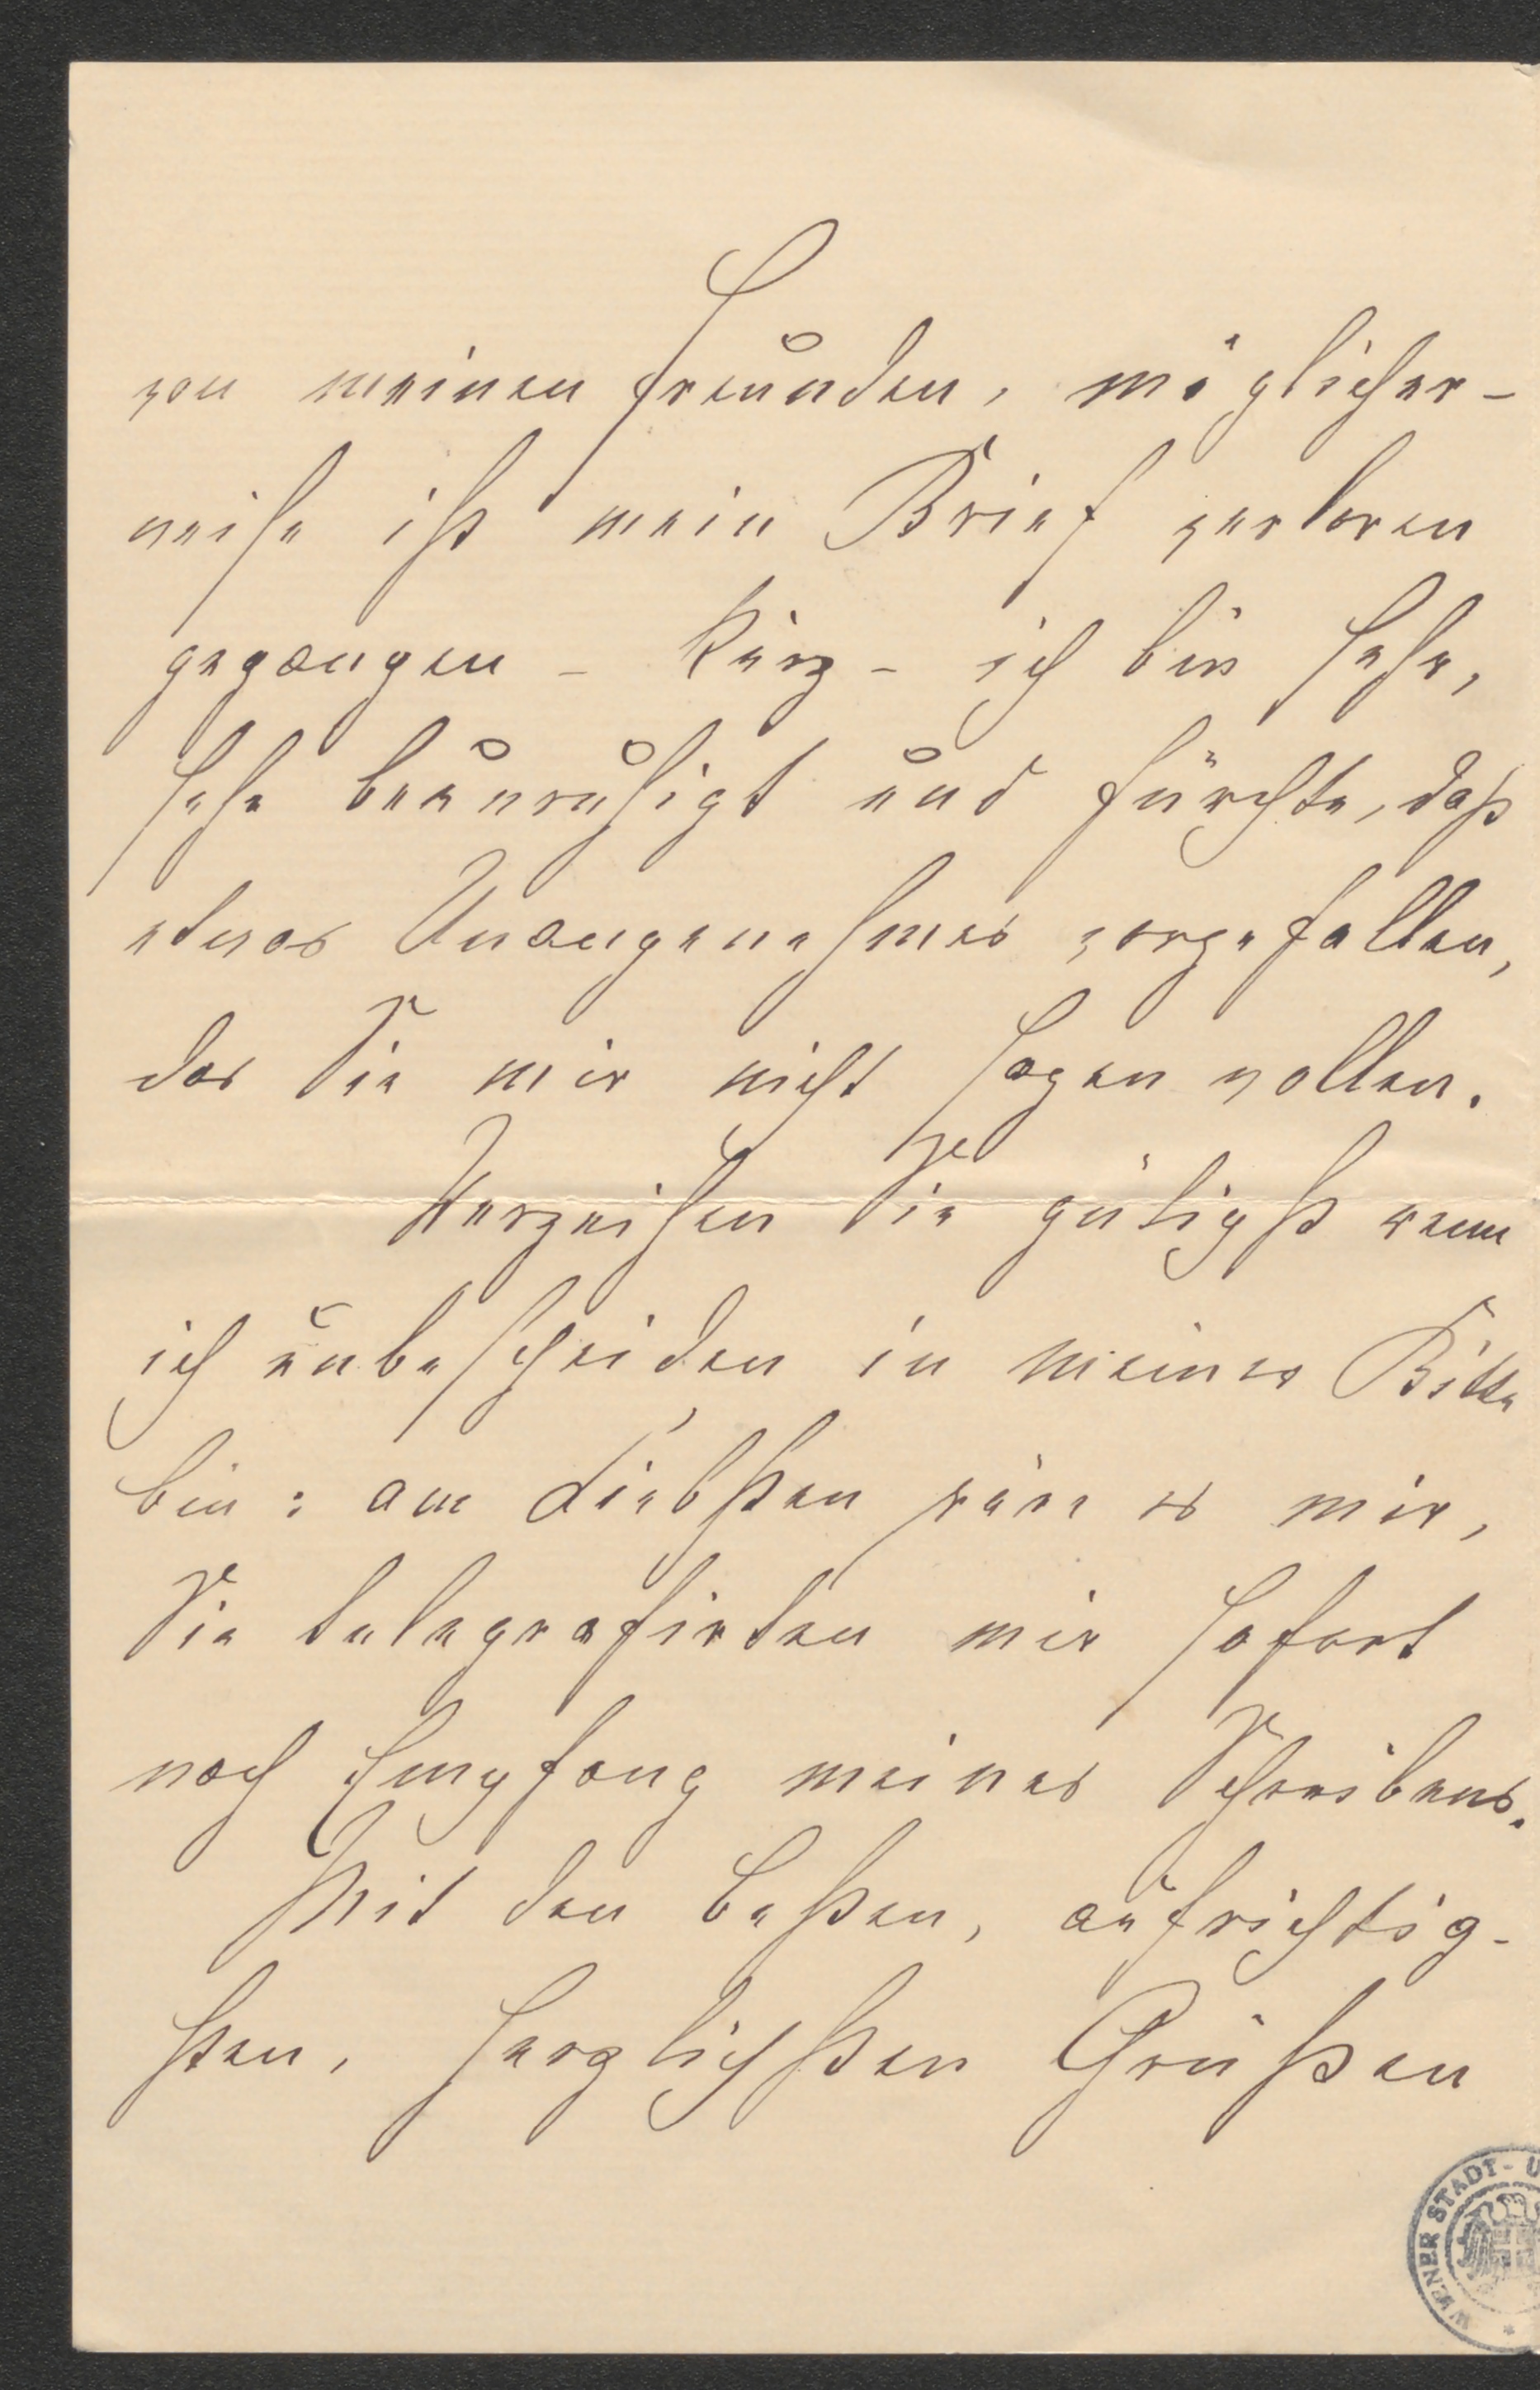 von meinen Freunden, möglicher-
weise ist mein Brief verloren
gegangen - kurz - ich bin sehr,
sehr beunruhigt und fürchte, daß
etwas Unangenehmes vorgefallen,
das Sie mir nicht sagen wollen.
Verzeihen Sie gütigst wenn
ich unbescheiden in meiner Bitte
bin: am Liebsten wäre es mir,
Sie telegrafirten mir sofort
nach Empfang meines Schreibens.
Mit den besten, aufrichtig-
sten, herzlichsten Grüßen
WIENER STADT- U